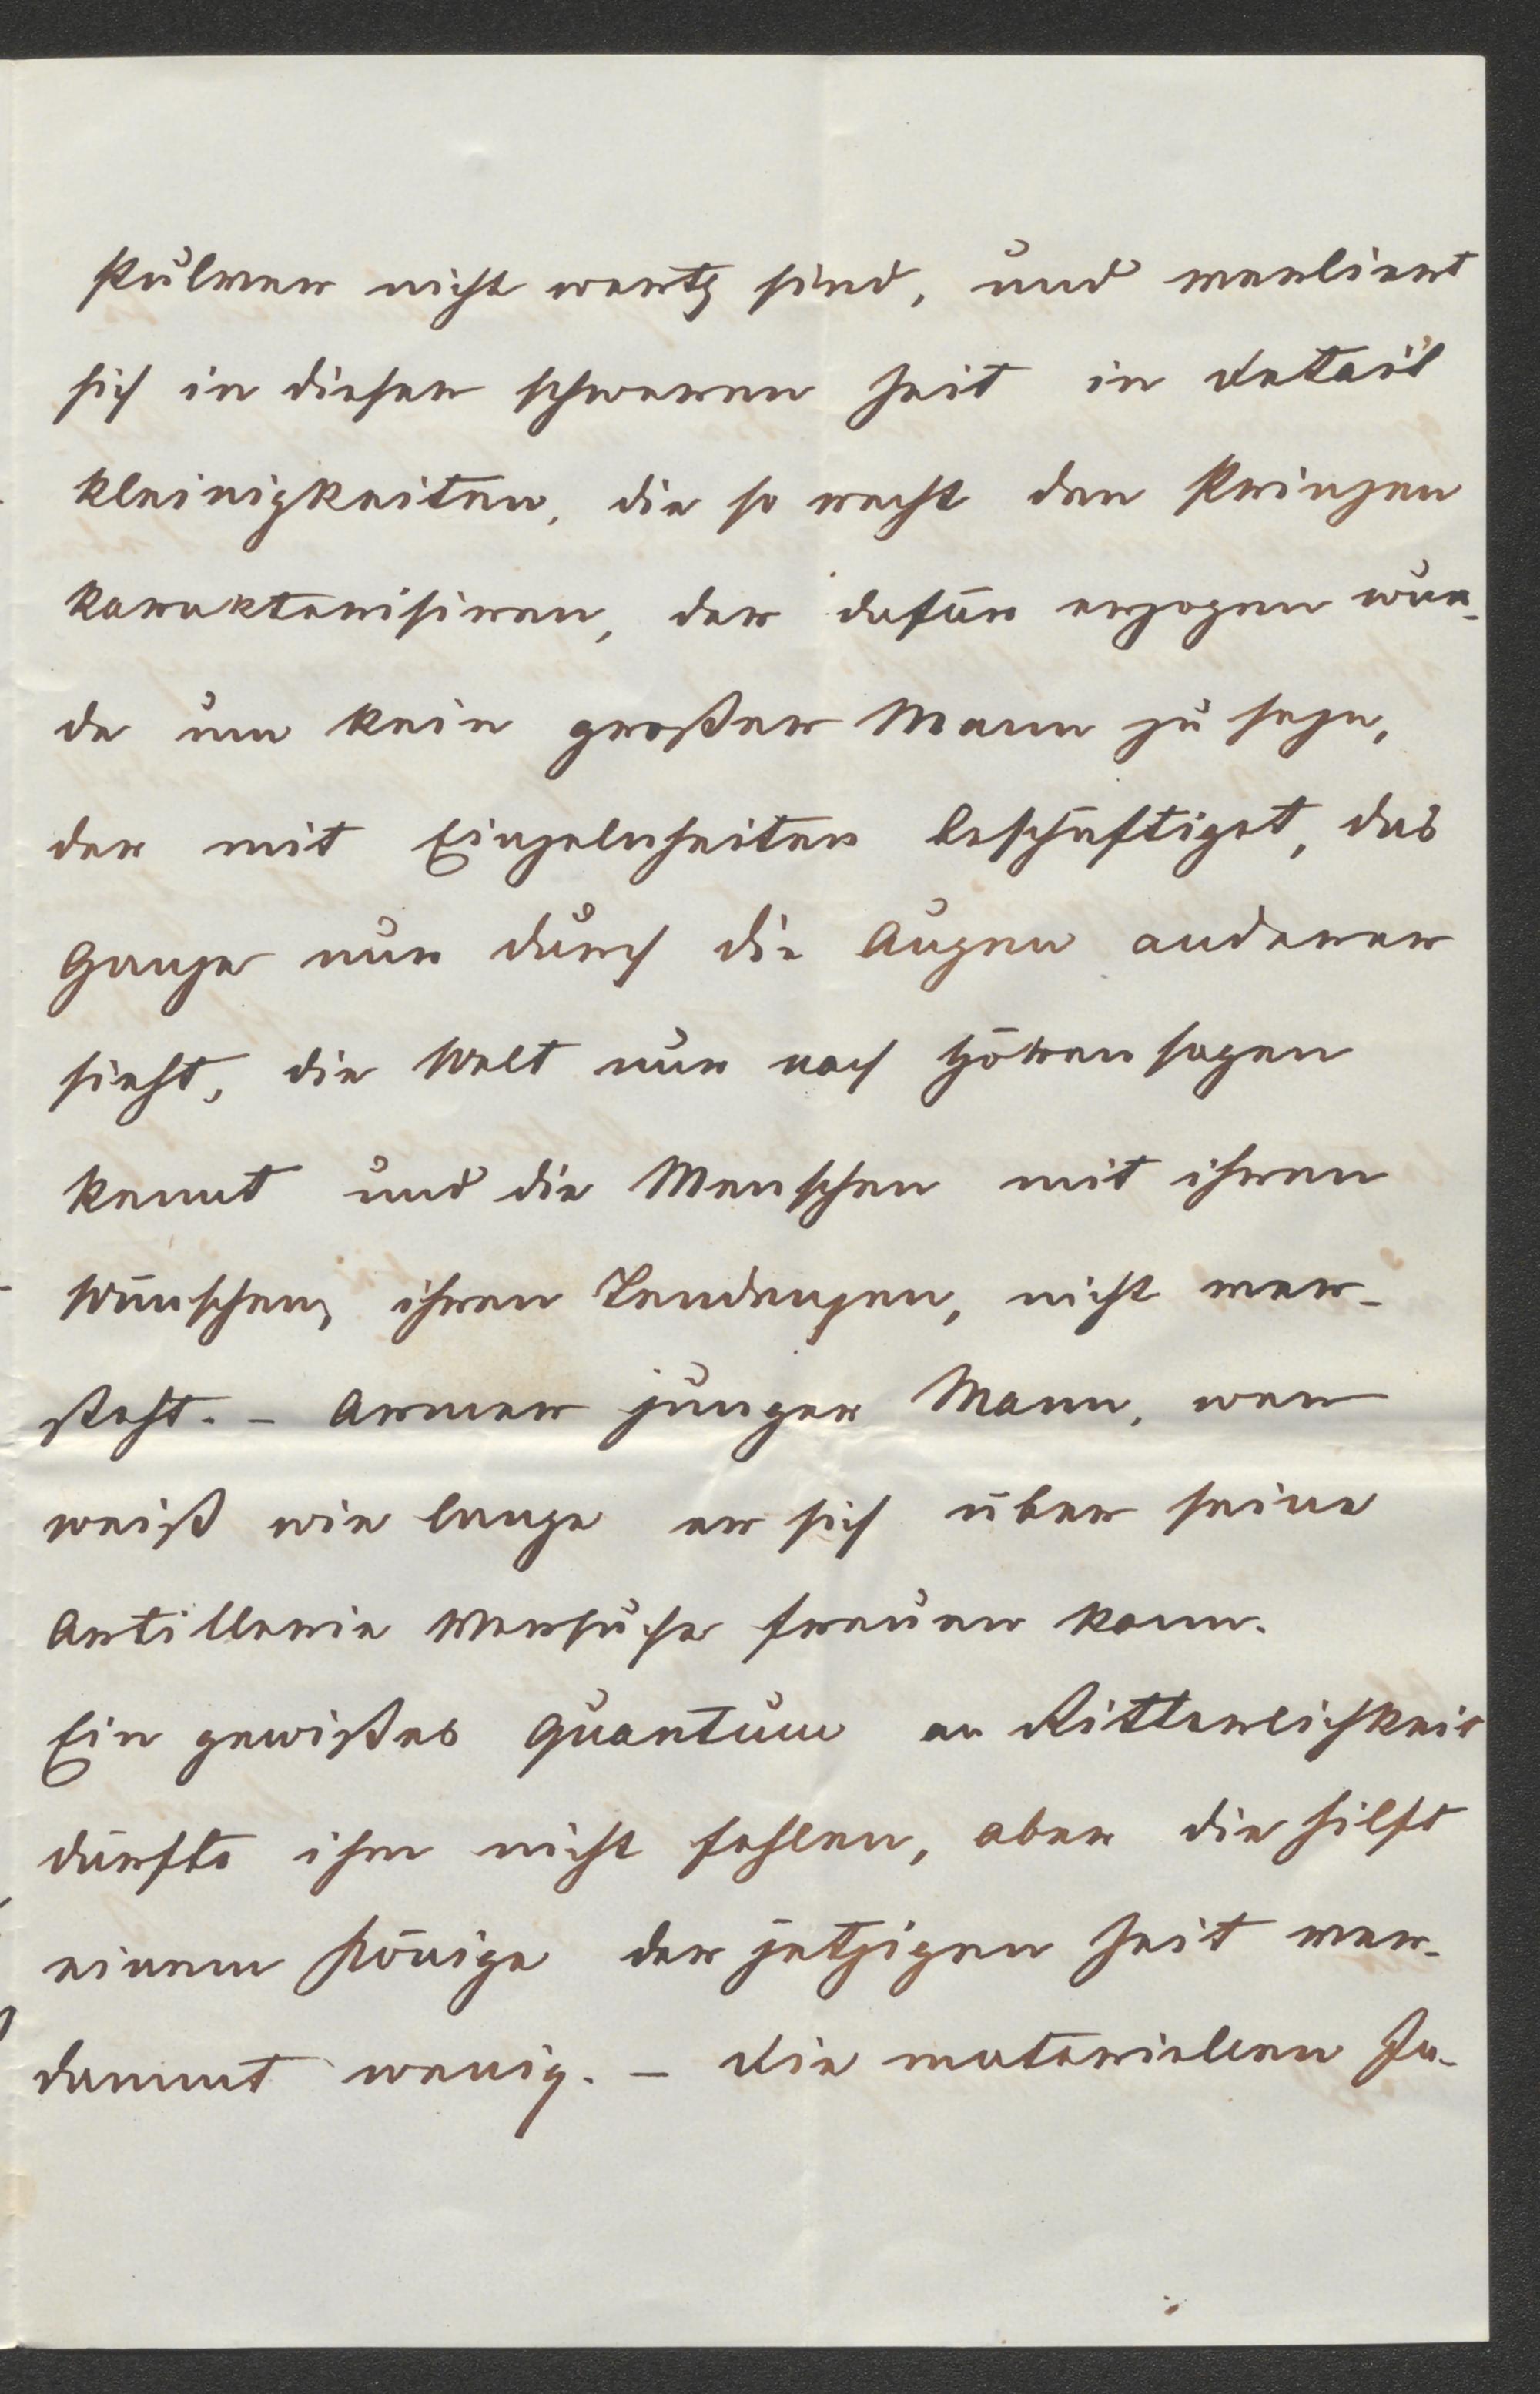 Pulver nicht werth sind, und verliert
sich in dieser schweren Zeit in Detail
kleinigkeiten, die so recht den Prinzen
karakterisiren, der dafür erzogen wur-
de um kein großer Mann zu seyn,
der mit Einzelnheiten beschäftiget, das
Ganze nur durch die Augen anderer
sieht, die Welt nur nach Hörensagen
kennt und die Menschen mit ihren
Wünschen, ihren Tendenzen, nicht ver-
steht. – Armer junger Mann, wer
weiß wie lange er sich über seine
Artillerie Versuche freuen kann.
Ein gewißes Quantum an Ritterlichkeit
dürfte ihm nicht fehlen, aber die hilft
einem Könige der jetzigen Zeit ver-
dammt wenig. – Die materiellen In-